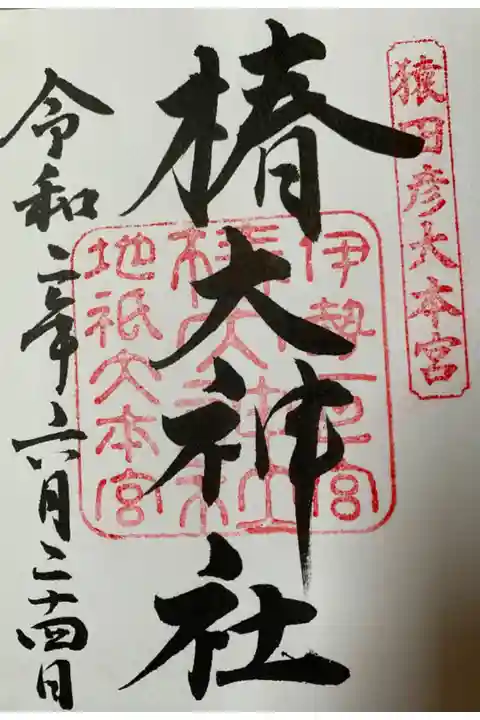 猿田彦大本宮
椿大神社
伊勢一之宮
椿大神社
地祇大本宮
令和二年六月二十四日